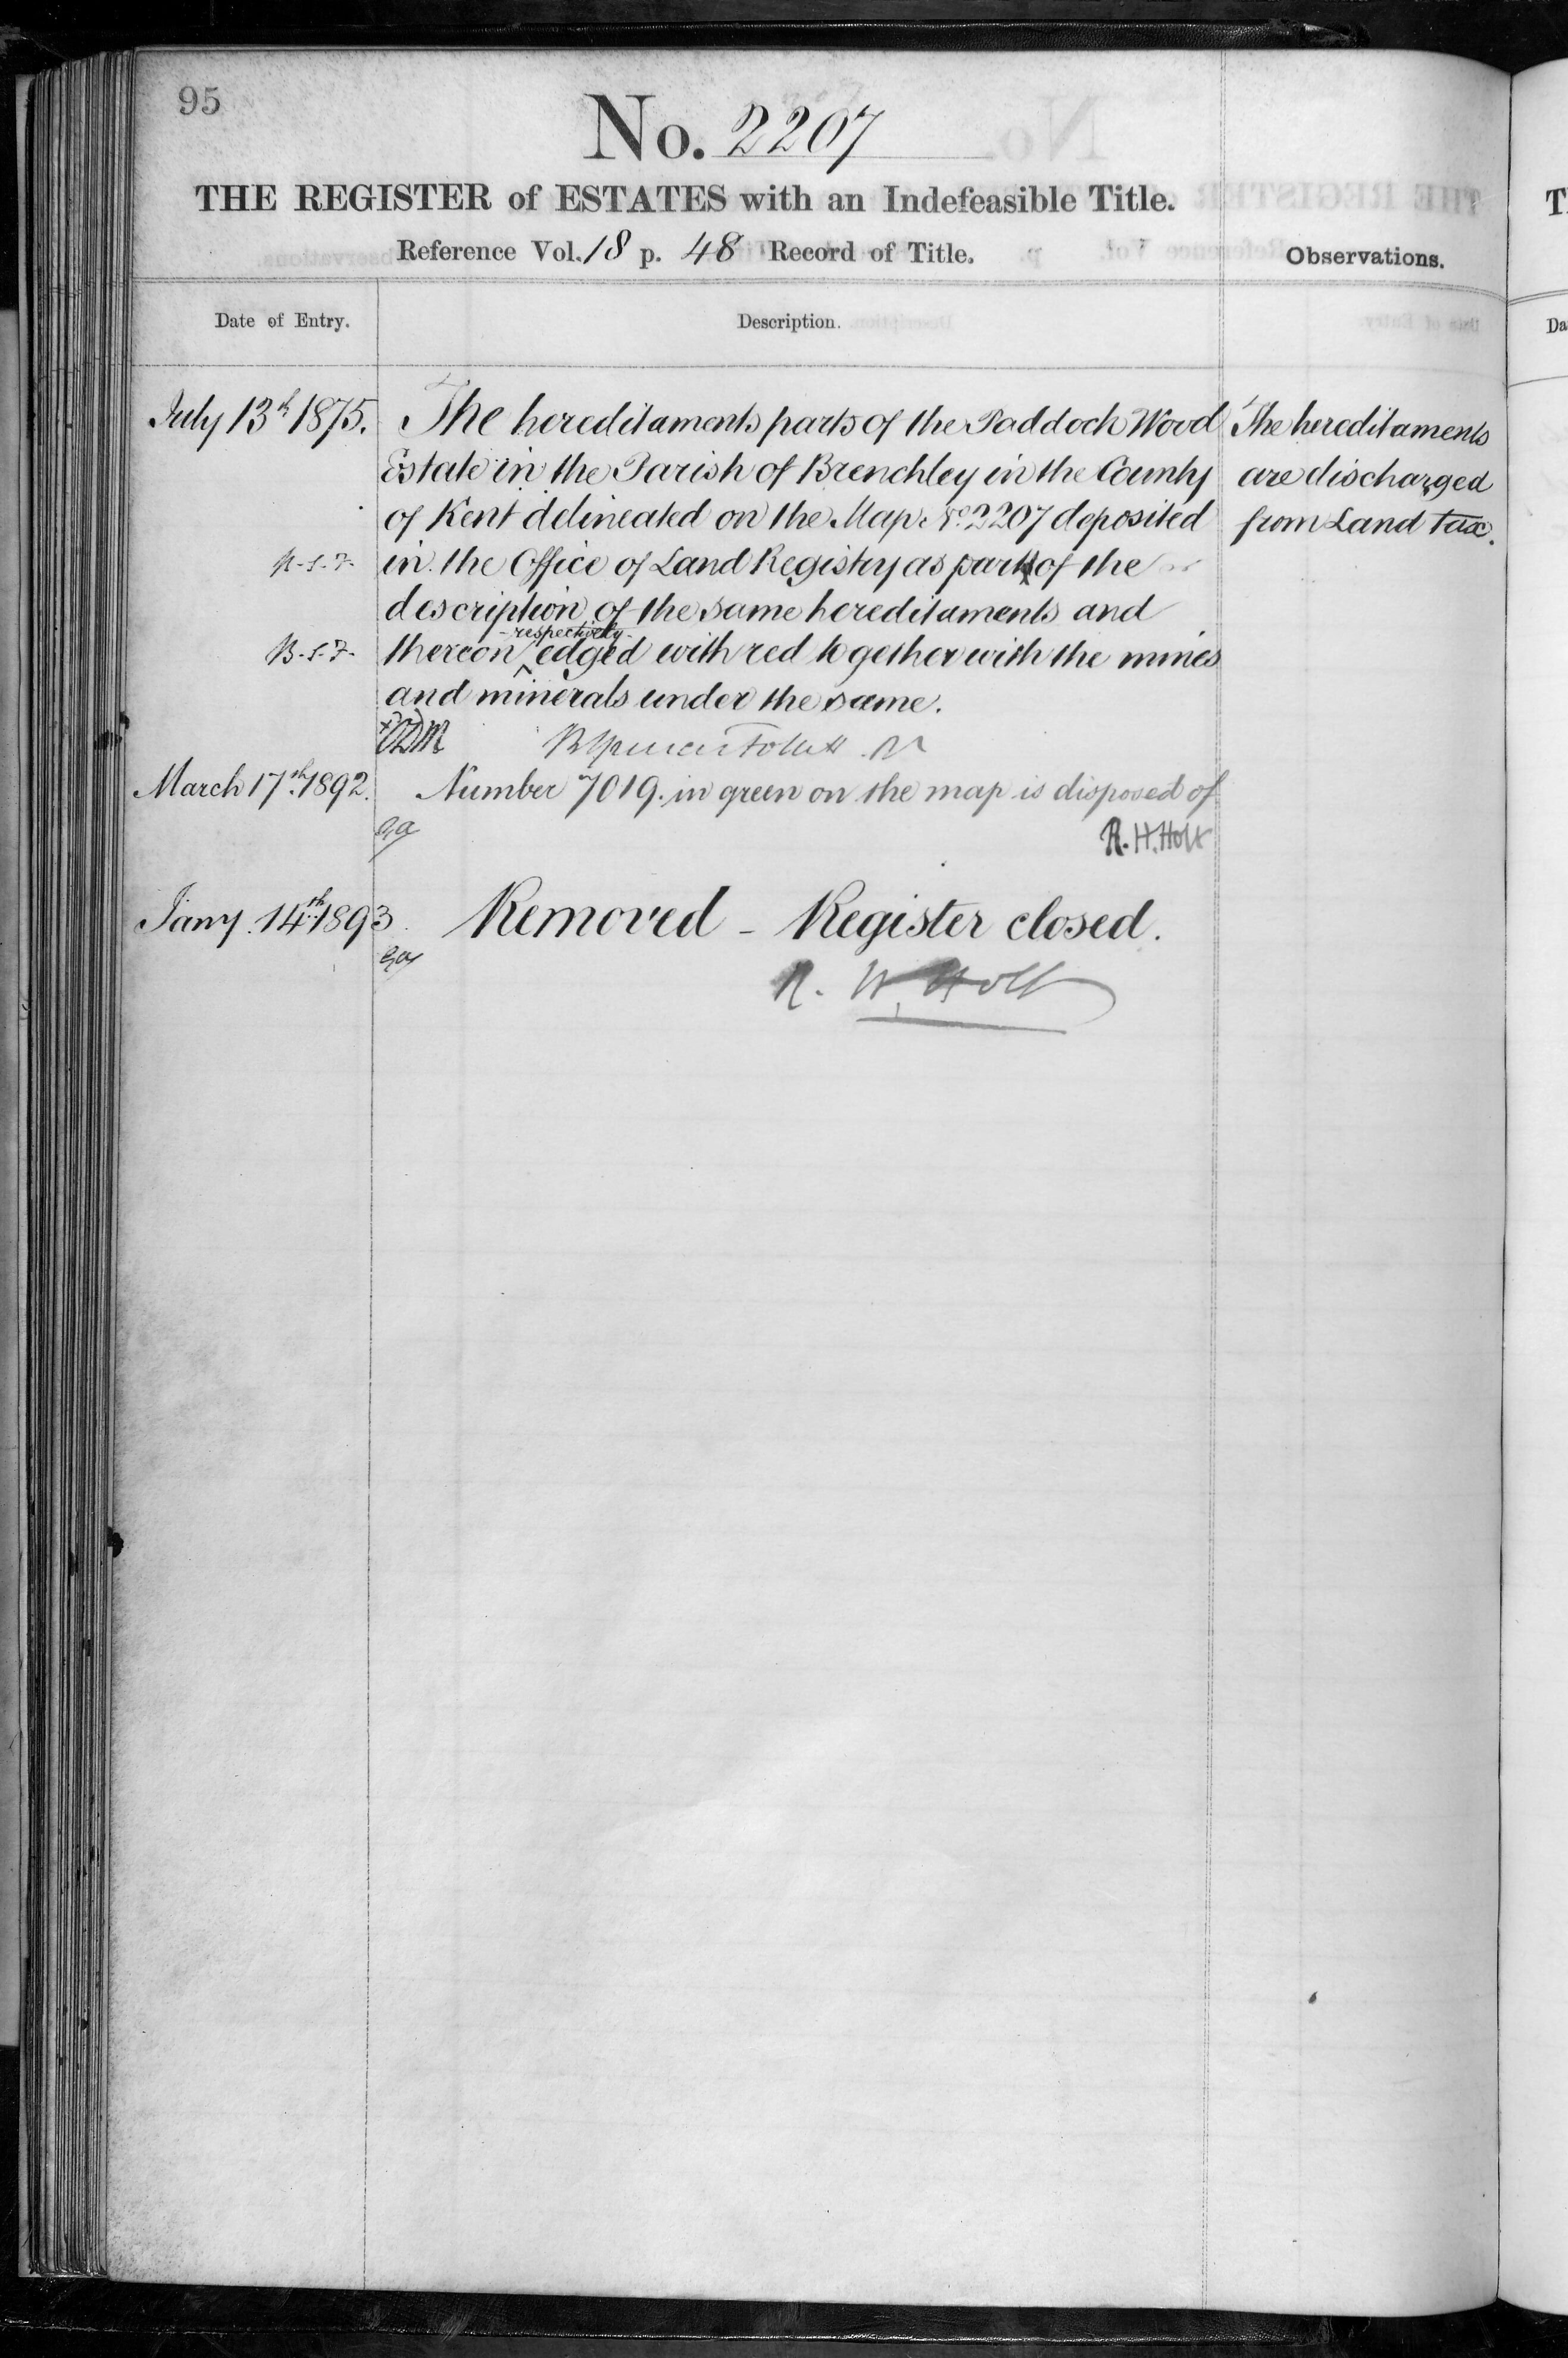 95
No. 2207
THE REGISTER of ESTATES with an Indefeasible Title.
Reference Vol. 18 p. 48 Record of Title.
Observations.
Date of Entry.
Description.
July 13th 1875.
The hereditaments parts of the Paddock Wood
Estate in the Parish of Brenchley in the County
of Kent delineated on the Map No 2207 deposited
in the Office of Land Registry as part of the
description of the same hereditaments and
respectively
B.S.F.
thereon ^ edged with red together with the mines
and minerals under the same.
The hereditaments
are discharged
from Land tax.
March 17th 1892.
Number 7019. in green on the map is disposed of
R. H. Holt
Jany. 14th 1893
Removed - Register closed.
R. H. Holt